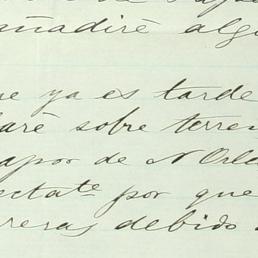 añadiré alg
ya es tarde
sobre terren
apor de N Orle
ectate por que
reras debido